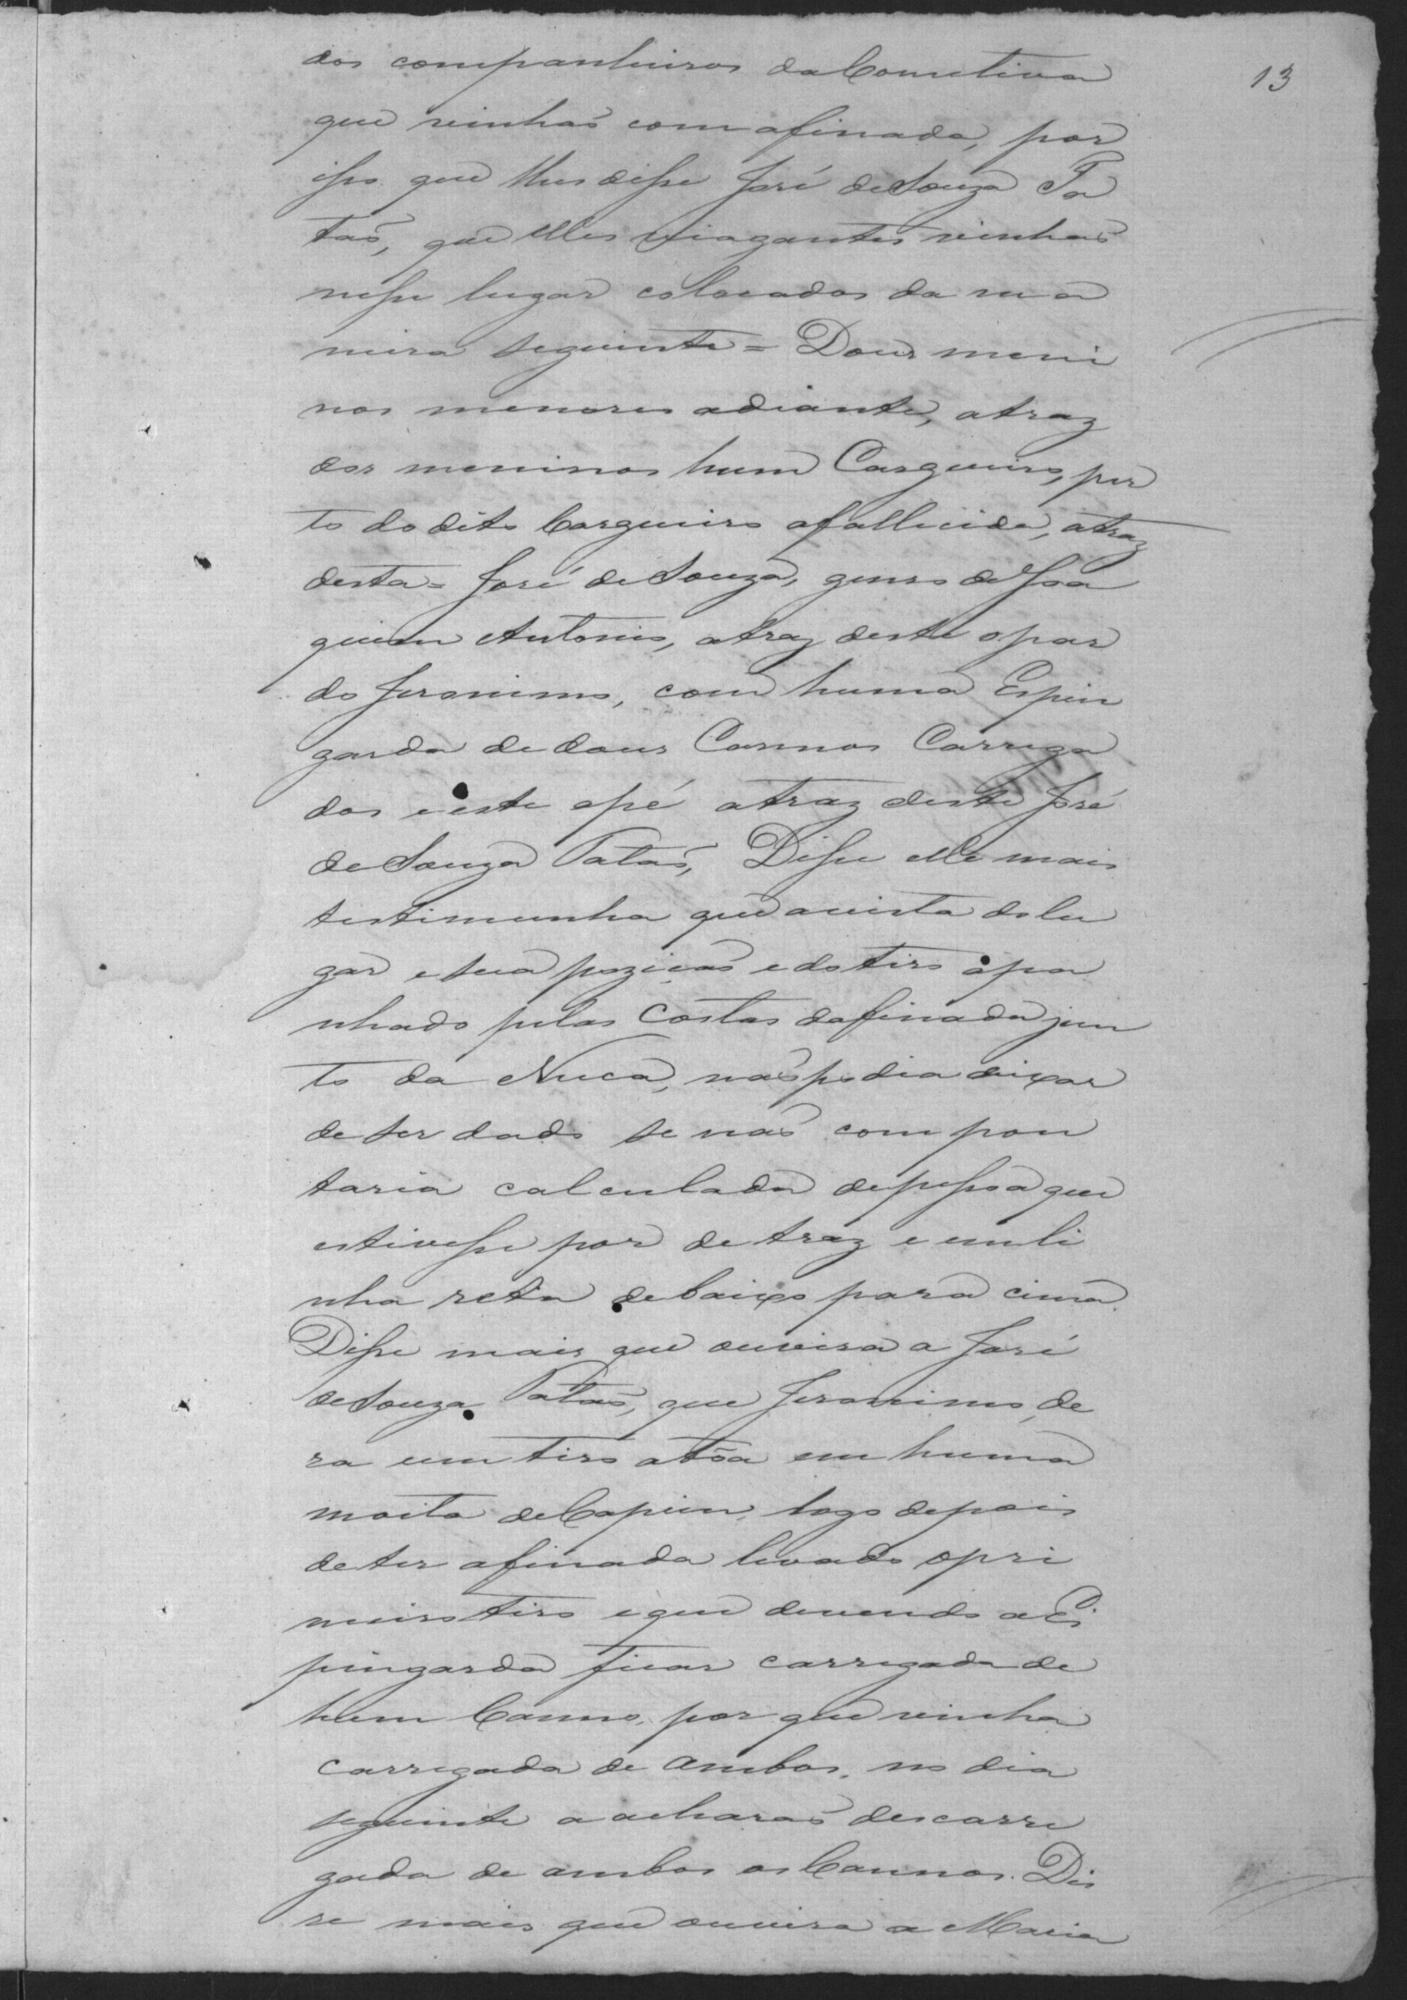 13
dos companheiros da Comitiva
que vinhaõ com afinada, por
isso que lhes disse José de Souza Pa
taõ, que elles viagantes vinhaõ
nesse lugar colocados da ma
neira seguinte = Dous meni
nos menores adiante, atraz
dos meninos hum Cargueiro, per
to do dito Cargueiro afallicida, atraz
desta = José de Souza, genro de Joa
quim Antonio, atraz deste opar
do Jeronimo, com huma Espin
garda de dous Cannos Carrega
dos e este apé atraz deste José
de Souza Pataõ, Disse elle mais
testimunha que avista do lu
gar e sua poziçaõ e do tiro apa
nhado pelas Costas dafinada jun
to da Nuca, naõ podia deixar
de ser dado se naõ com pon
taria calculada depessoa que
estivesse por de traz e em li
nha reta debaixo para cima.
Disse mais que ouvira a José
de Souza Pataõ, que Jeronimo de
ra um tiro atõa em huma
moita de Capim, logo depois
de ter afinada levado opri
meiro tiro e que devendo a Es
pingarda ficar carregada de
hum Canno, por que vinha
carregada de ambos, no dia
seguinte a acharaõ descarre
gada de ambos os Cannos. Dis
se mais que ouvira a Maria